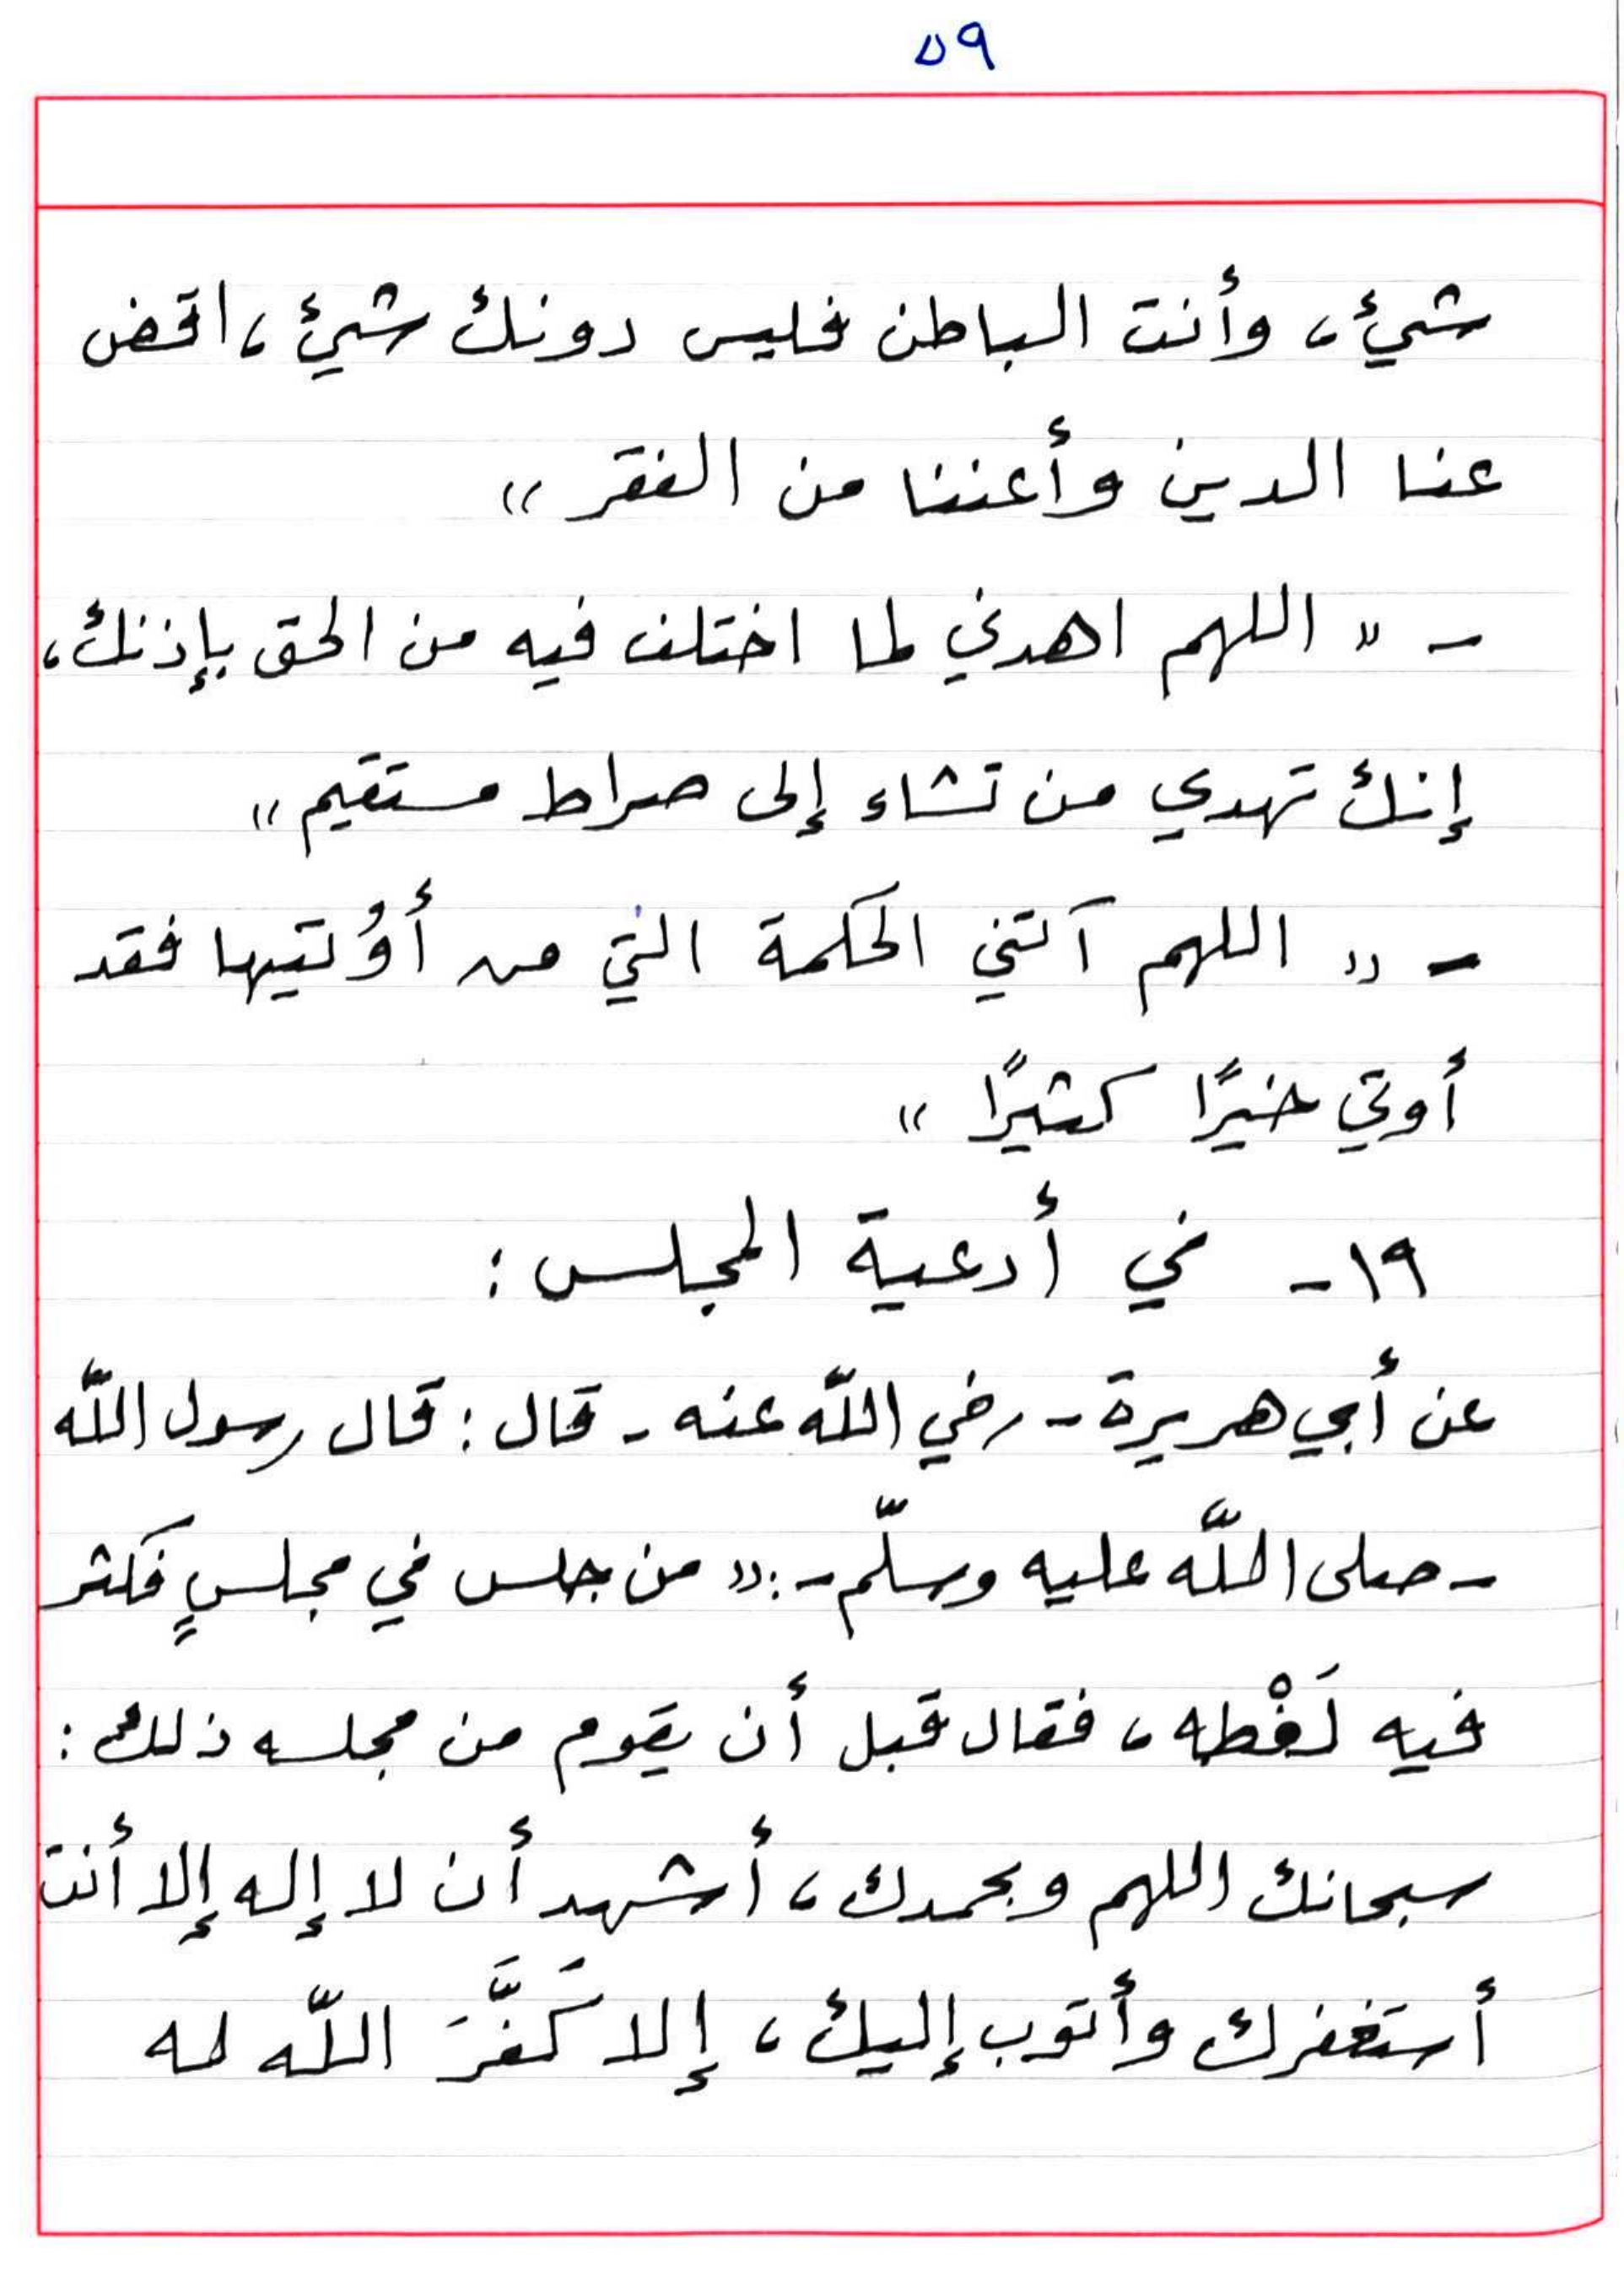 ٥٩
شيءٌ، وأنت الباطن فليس دونك شيءٌ، اقض
عنا الدين وأغننا من الفقر))
- ((اللهم اهدني لما اختلف فيه من الحق بإذنك،
إنك تهدي من تشاء إلى صراط مستقيم))
- ((اللهم آتني الحكمة التي من أوُتيها فقد
أوتي خيرًا كثيرًا))
١٩- في أدعية المجلس:
عن أبي هريرة - رضي اللّه عنه - قال: قال رسول اللّه
- صلى اللّه عليه وسلّم -: ((من جلس في مجلسٍ فكثر
فيه لَغْطه، فقال قبل أن يقوم من مجلسه ذلك:
سبحانك اللهم وبحمدك، أشهد أن لا إله إلا أنت
أستغفرك وأتوب إليك، إلا كَفَّرَ اللّه له